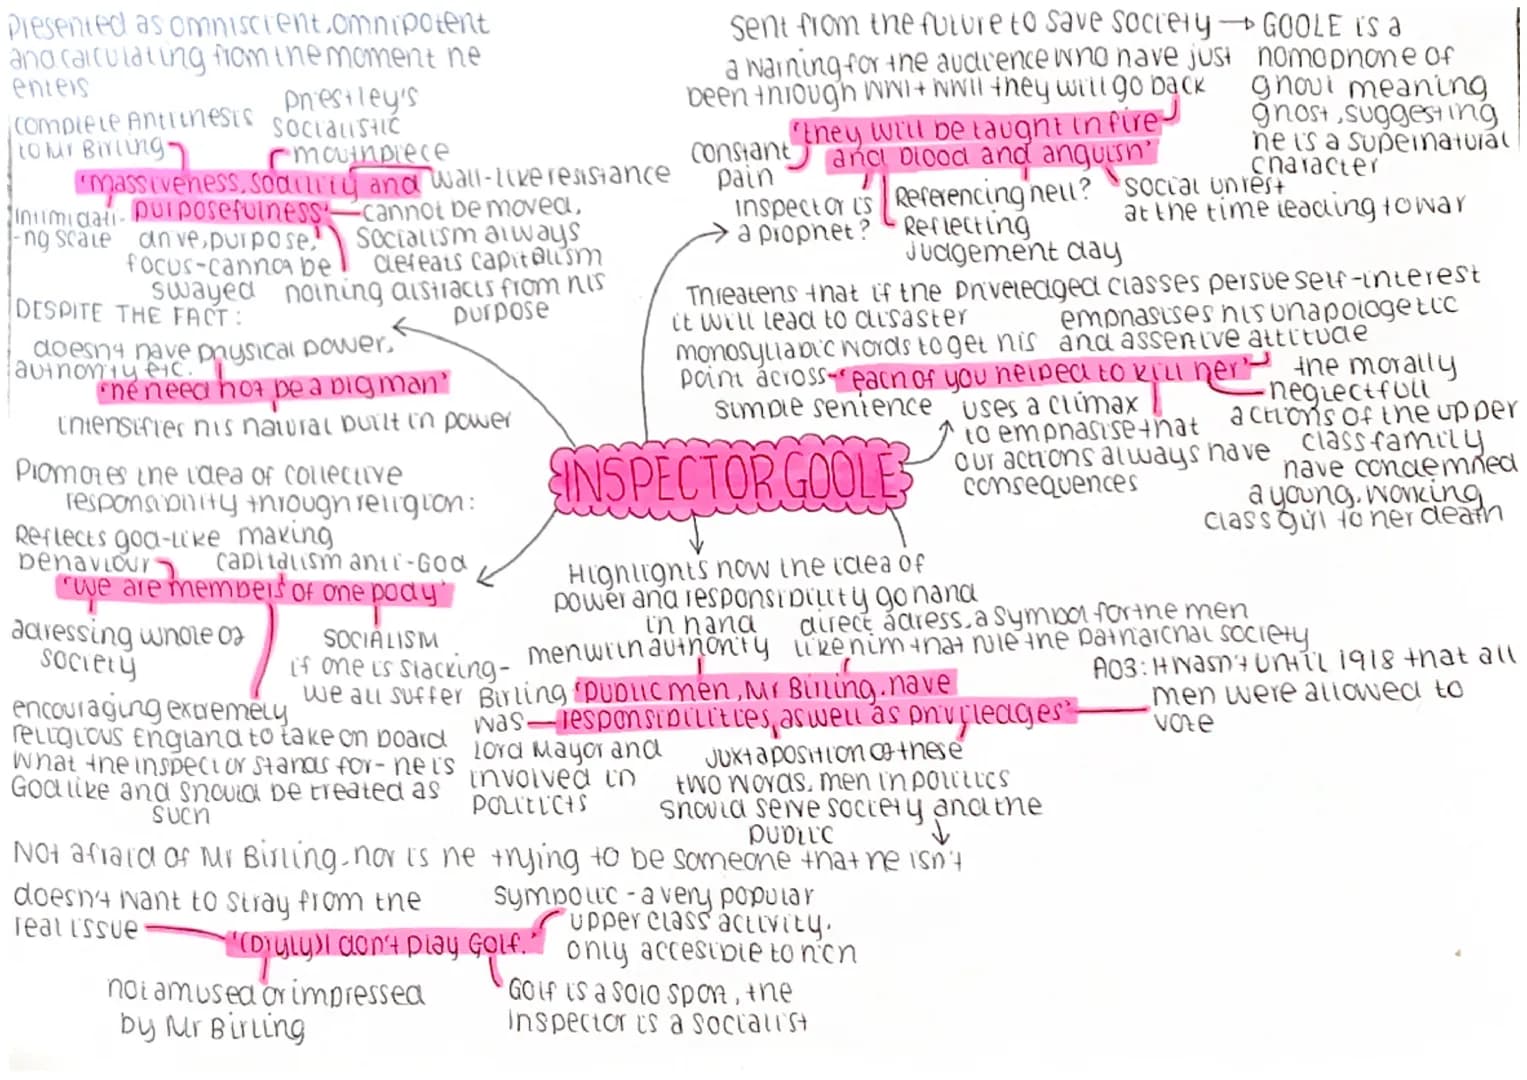 Presented as omniscient, omnipotent
and calculating from the moment he
enters
complete Antithesis
to Mr Birling
Priestley's
socialistic
mouthpiece
'massiveness, solidity and
purposefulness'
wall-like resistance
cannot be moved,
Socialism always
defeats capitalism
intimidati-
-ng scale
drive, purpose,
focus-cannot be
swayed
nothing distracts from his
purpose
DESPITE THE FACT:
doesn't have physical power,
authority etc.
'he need not be a big man'
intensifies his natural built in power
Promotes the idea of collective
responsibility through religion:
Reflects god-like
behaviour
making
capitalism anti-God
'we are members of one body'
adressing whole of
society
SOCIALISM
if one is slacking-
we all suffer
encouraging extremely
religious England to take on board
what the inspector stands for- he is
Godlike and should be treated as
such
INSPECTOR GOOLE
Sent from the future to save society → GOOLE is a
homophone of
ghoul meaning
ghost, suggesting
he is a supernatural
character
a warning for the audience who have just
been through WWI + WWII they will go back
'they will be taught in fire
and blood and anguish'
constant
pain
inspector is
a prophet?
Referencing hell?
Reflecting
Judgement day
social unrest
at the time leading to war
Threatens that if the priveledged classes persue self-interest
it will lead to disaster
emphasises his unapologetic
and assertive attitude
monosyllabic words to get his
point across
'each of you helped to kill her'
simple sentence
uses a climax
to emphasise that
our actions always have
consequences
the morally
neglectfull
actions of the upper
class family
have condemned
a young, working
class girl to her death
Highlights how the idea of
power and responsibility go hand
in hand
men with authority
direct adress, a symbol for the men
like him that rule the patriarchal society
'public men, Mr Birling, have
responsibilities, as well as privileges'
Birling
was
Lord Mayor and
involved in
politicts
juxtaposition of these
two words, men in politics
should serve society and the
public
AO3: It wasn't until 1918 that all
men were allowed to
vote
Not afraid of Mr Birling, nor is he trying to be someone that he isn't
doesn't want to stray from the
real issue
'(Dryly) I don't play Golf.'
symbolic - a very popular
upper class activity,
only accesible to rich
not amused or impressed
by Mr Birling
Golf is a solo sport, the
inspector is a socialist